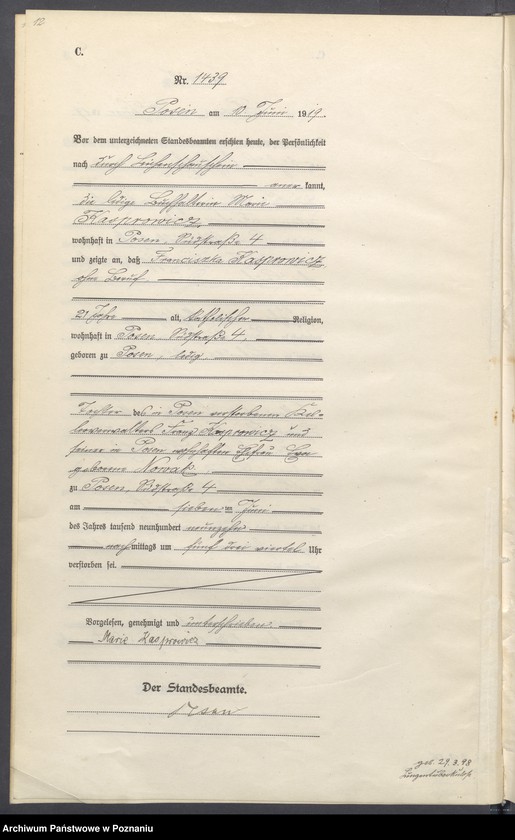 12
C.
Nr. 1439
Posen am Juni 1919.
Vor dem unterzeichneten Standesbeamten erschien heute, der Persönlichkeit
nach durch Leichenschauschein
aner kannt,
die ledige Buchhalterin Marie
Kasprowicz,
wohnhaft in Posen, Südstraße 4
und zeigte an, daß Franciszka Kasprowicz,
ohne Beruf
21 Jahre alt, katholischer Religion,
wohnhaft in Posen Südstraße 4,
geboren zu Posen, ledig
Tochter des in Posen verstorbenen
Franz Kasprowicz und
seiner in Posen wohnhaften Ehefrau
geborene Nowak.
zu Posen, Südstraße 4
am sieben ten Juni
des Jahres tausend neunhundert neunzehn
nach mittags um fünf drei viertel Uhr
verstorben sei.
Vorgelesen, genehmigt und unterschrieben
Marie Kasprowicz
Der Standesbeamte.
geb. 29.3.98
Lungentuberkulose
Archiwum Państwowe w Poznaniu